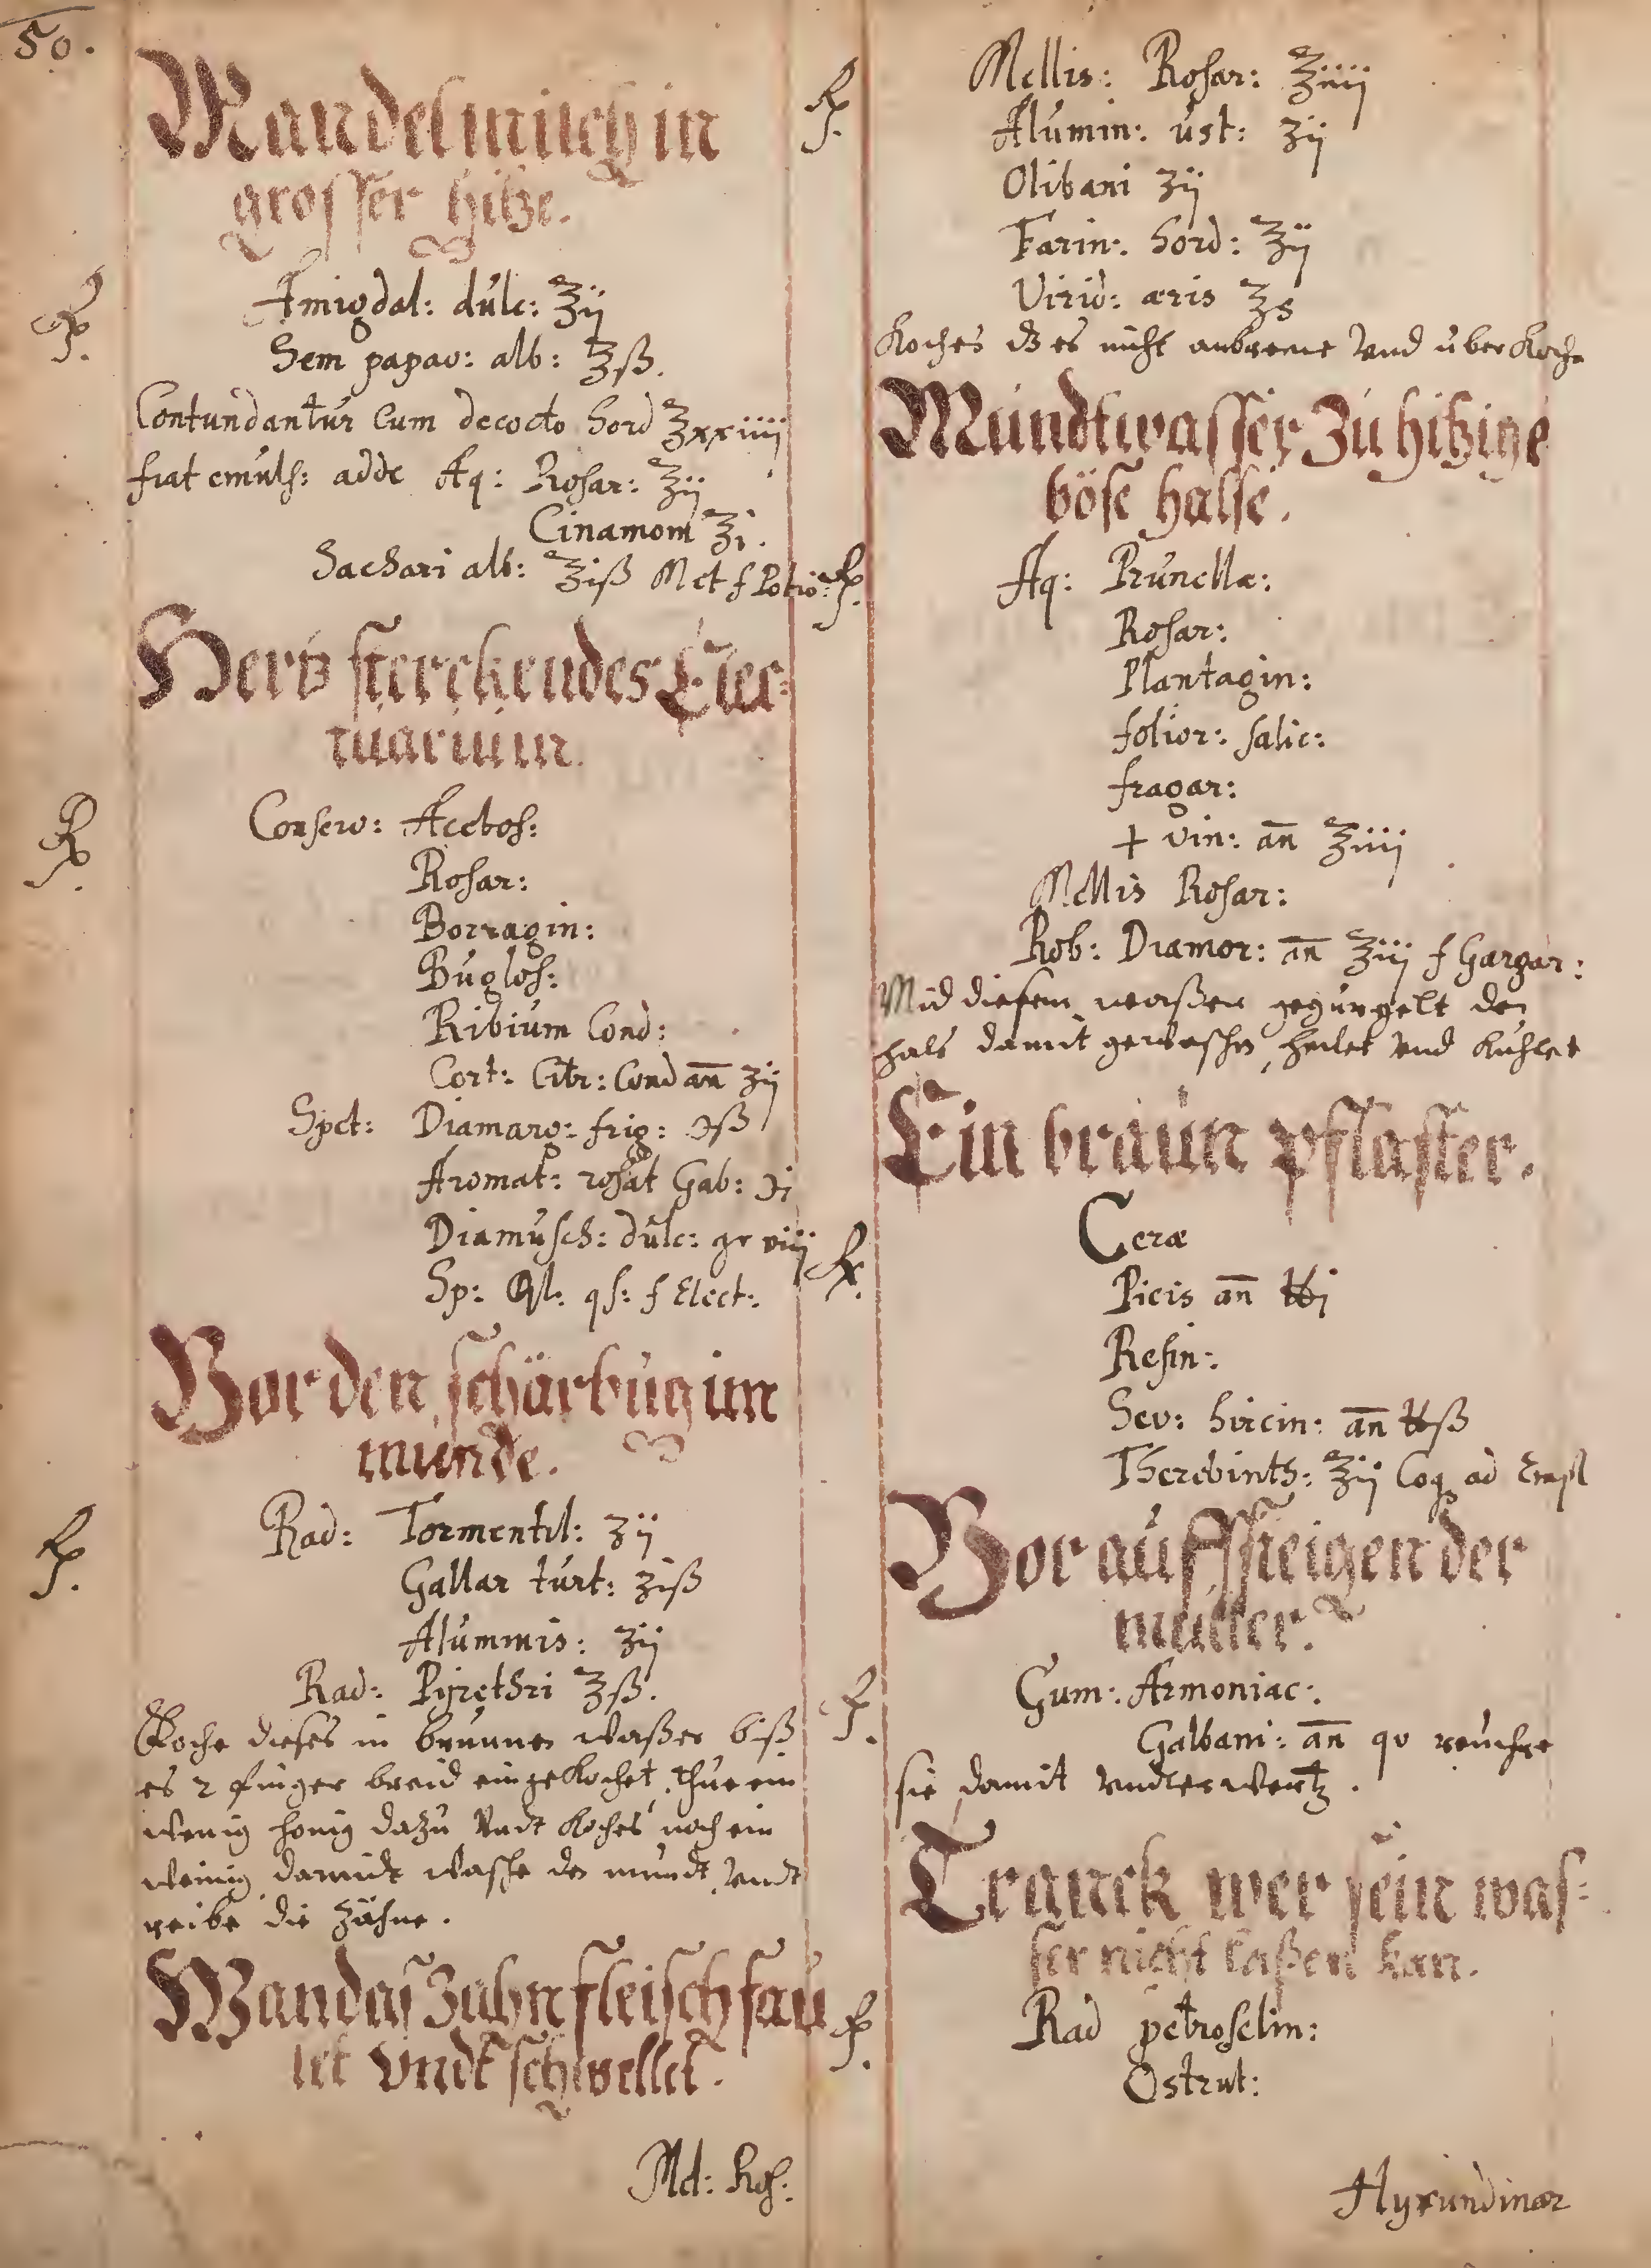 50.
Mandelmilch in
grosser hitze.
Rp. Amigdal: dulc: ℥ij
Sem papav: alb: ℥ß.
Contundantur Cum decocto hord ℥xxiiij
fiat emuls: adde Aq: Rosar: ℥ij
Cinamom ℥i.
Sachari alb: ℥iß M et f Potio:
Hertz sterckendes Elec=
tuarium.
Rp. Conserv: Acetos:
Rosar:
Borragin:
Buglos:
Ribium Cond:
Cort: Citr: Cond añ ʒij
Spet: Diamarg: frig: ℈ß
Aromat: rosat Gab: ℈i
Diamusch: dulc: gr viij
Sp: qs: f Elect:
Vor den schärbug im
munde.
Rp. Rad: Tormentil: ʒij
Gallar turt: ʒiß
Aluminis: ʒij
Rad: Pijrethri ℥ß.
Koche dieses in brunnen waßer biß
es 2 finger breid eingekochet, thue ein
wenig honig dazu undt koches noch ein
weinig, damidt wasche den mundt, undt
reibe die zähne.
Wan das Zahnfleisch fau
let undt schwellet.
Mel: Ros:
Rp. Mellis: Rosar: ℥iiij
Alumin: ust: ʒij
Olibani ʒij
Farin: hord: ℥ij
Virid: æris ℥s
Koches dz es nicht anbrenne und überkoche
Mundtwasser zu hitzige
böse halse.
Rp. Aq: Prunellæ:
Rosar:
Plantagin:
folior: salic:
fragar:
+ vin: añ ℥iiij
Mellis Rosar:
Rob: Diamor: añ ℥iij f Gargar:
Mid diesem waßer gegurgelt den
hals damit gewaschen, heilet und kuhlet
Ein braun pflaster.
Rp. Ceræ
Picis añ ℔i
Resin:
Sev: hircin: añ ℔ß
Therebinth: ℥ij Coq ad Empl
Vor auffsteigen der
mutter.
Rp. Gum: Armoniac:
Galbani: añ qv reuchre
sie damit underwertz.
Tranck wer sein was=
ser nicht laßen kan.
Rp. Rad petroselin:
Ostrut:
Hyrundinar